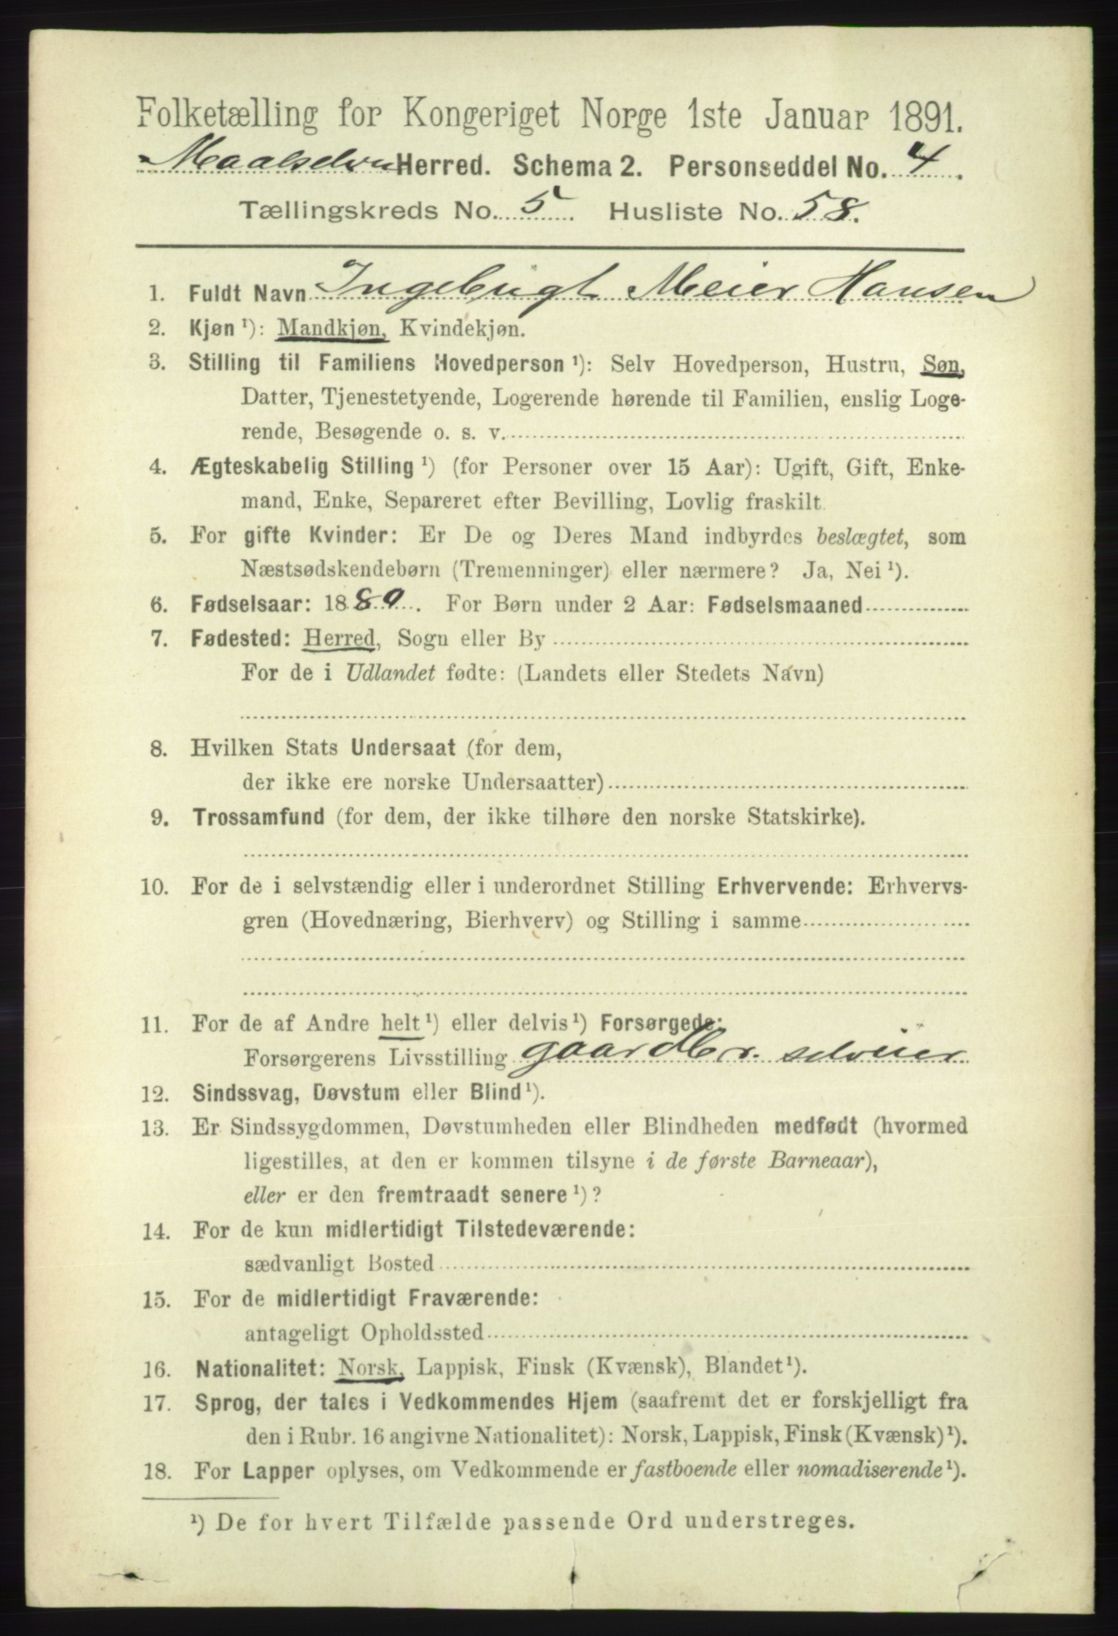 Folketælling for Kongeriget Norge 1ste Januar 1891.
Maalselven Herred. Schema 2. Personseddel No. 4.
Tællingskreds No. 5. Husliste No. 58.
1. Fuldt Navn Ingebrigt Meier Hansen
2. Kjøn ¹): Mandkjøn, Kvindekjøn.
3. Stilling til Familiens Hovedperson ¹): Selv Hovedperson, Hustru, Søn,
Datter, Tjenestetyende, Logerende hørende til Familien, enslig Loge-
rende, Besøgende o. s. v.
4. Ægteskabelig Stilling ¹) (for Personer over 15 Aar): Ugift, Gift, Enke-
mand, Enke, Separeret efter Bevilling, Lovlig fraskilt
5. For gifte Kvinder: Er De og Deres Mand indbyrdes beslægtet, som
Næstsødskendebørn (Tremenninger) eller nærmere? Ja, Nei ¹).
6. Fødselsaar: 1889. For Børn under 2 Aar: Fødselsmaaned
7. Fødested: Herred, Sogn eller By
For de i Udlandet fødte: (Landets eller Stedets Navn)
8. Hvilken Stats Undersaat (for dem,
der ikke ere norske Undersaatter)
9. Trossamfund (for dem, der ikke tilhøre den norske Statskirke).
10. For de i selvstændig eller i underordnet Stilling Erhvervende: Erhvervs-
gren (Hovednæring, Bierhverv) og Stilling i samme
11. For de af Andre helt ¹) eller delvis ¹) Forsørgede:
Forsørgerens Livsstilling gaardbr. selveier
12. Sindssvag, Døvstum eller Blind ¹).
13. Er Sindssygdommen, Døvstumheden eller Blindheden medfødt (hvormed
ligestilles, at den er kommen tilsyne i de første Barneaar),
eller er den fremtraadt senere ¹)?
14. For de kun midlertidigt Tilstedeværende:
sædvanligt Bosted
15. For de midlertidigt Fraværende:
antageligt Opholdssted
16. Nationalitet: Norsk, Lappisk, Finsk (Kvænsk), Blandet ¹).
17. Sprog, der tales i Vedkommendes Hjem (saafremt det er forskjelligt fra
den i Rubr. 16 angivne Nationalitet): Norsk, Lappisk, Finsk (Kvænsk) ¹).
18. For Lapper oplyses, om Vedkommende er fastboende eller nomadiserende ¹).
¹) De for hvert Tilfælde passende Ord understreges.